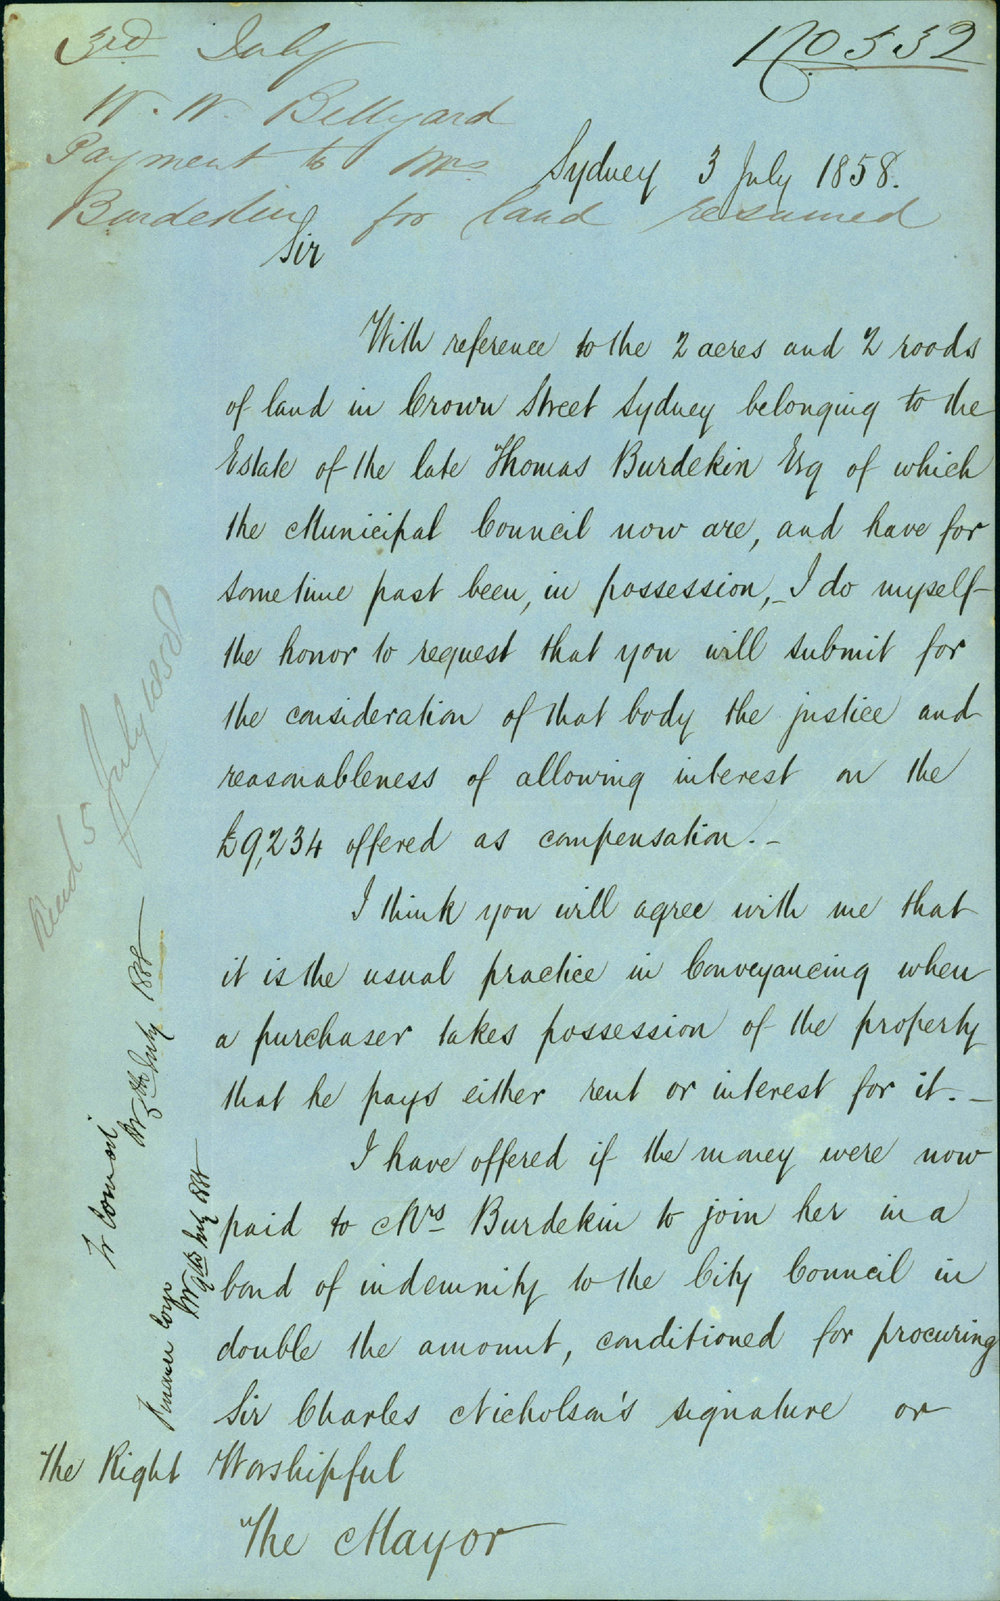 3rd July
No 532
W. W. Billyard
Payment to Mrs
Burdekin for land resumed
Sydney 3 July 1858.
Sir
With reference to the 2 acres and 2 roods
of land in Crown Street Sydney belonging to the
Estate of the late Thomas Burdekin Esq of which
the Municipal Council now are, and have for
some time past been, in possession, _ I do myself
the honor to request that you will submit for
the consideration of that body the justice and
reasonableness of allowing interest on the
£9,234 offered as compensation. _
I think you will agree with me that
it is the usual practice in Conveyancing when
a purchaser takes possession of the property
that he pays either rent or interest for it. _
I have offered if the money were now
paid to Mrs Burdekin to join her in a
bond of indemnity to the City Council in
double the amount, conditioned for procuring
Sir Charles Nicholson's signature or
The Right Worshipful
The Mayor
Read 5 July 1858
Fr Council
5th July 1858
Finance
July 1858